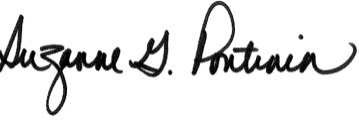 Suzanne G. Pontinin